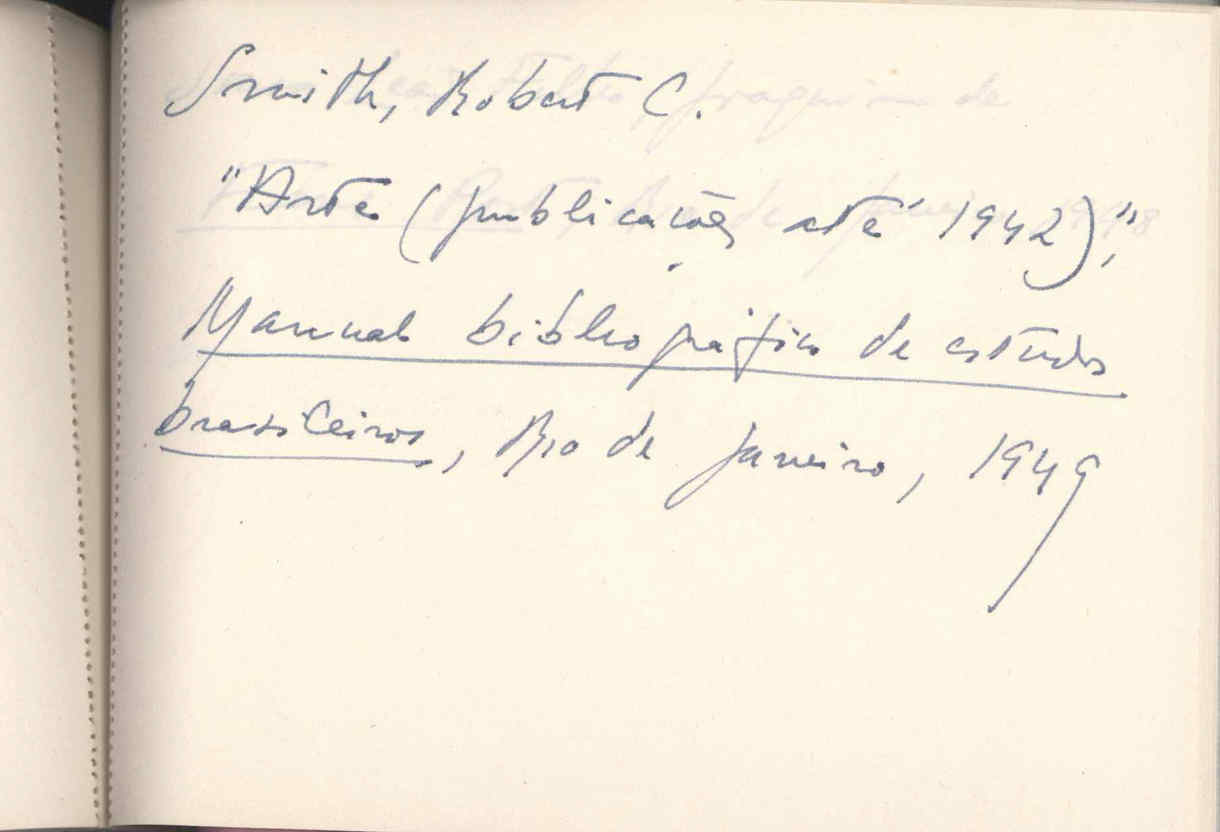 Smith, Robert C.
"Arte (publicações até 1942),"
Manual bibliográfico de estudos
brasileiros, Rio de Janeiro, 1949